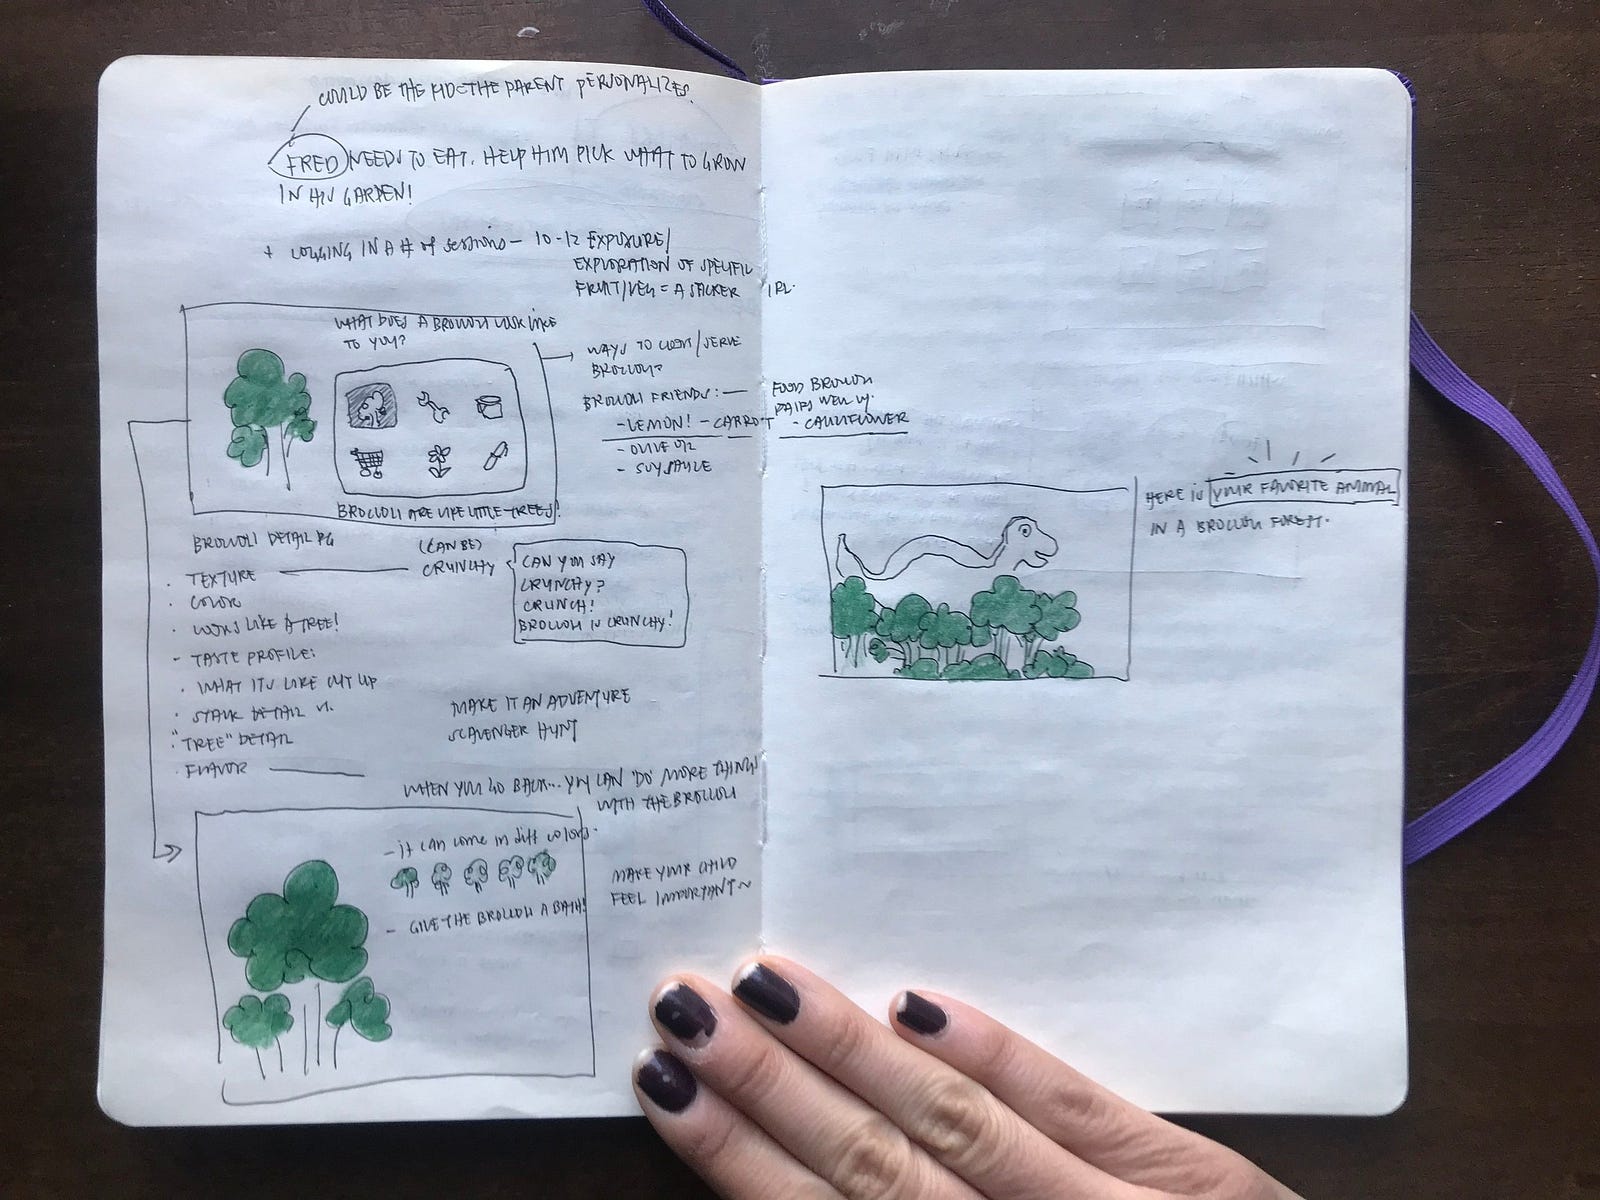 COULD BE THE KID THE PARENT PERSONALIZES.
FRED NEEDS TO EAT. HELP HIM PICK WHAT TO GROW
IN HIS GARDEN!
+ LOGGING IN A # of sessions - 10-12 EXPOSURE/
EXPLORATION OF SPECIFIC
FRUIT/VEG = A STICKER IRL.
WHAT DOES A BROCCOLI LOOK LIKE
TO YOU?
BROCCOLI ARE LIKE LITTLE TREES!
WAYS TO COOK/SERVE
BROCCOLI?
BROCCOLI FRIENDS: — FOOD BROCCOLI
PAIRS WELL W.
- LEMON! - CARROT - CAULIFLOWER
- OLIVE OIL
- SOY SAUCE
BROCCOLI DETAIL PG
· TEXTURE — (CAN BE)
CRUNCHY
CAN YOU SAY
CRUNCHY?
CRUNCH!
BROCCOLI IS CRUNCHY!
· COLOR
· LOOKS LIKE A TREE!
- TASTE PROFILE:
· WHAT ITS LIKE CUT UP
· STALK DETAIL VS.
· "TREE" DETAIL
· FLAVOR —
MAKE IT AN ADVENTURE
SCAVENGER HUNT
WHEN YOU GO BACK... YOU CAN 'DO' MORE THINGS
WITH THE BROCCOLI
- it can come in diff colors.
- GIVE THE BROCCOLI A BATH!
MAKE YOUR CHILD
FEEL IMPORTANT~
HERE IS YOUR FAVORITE ANIMAL
IN A BROCCOLI FOREST.